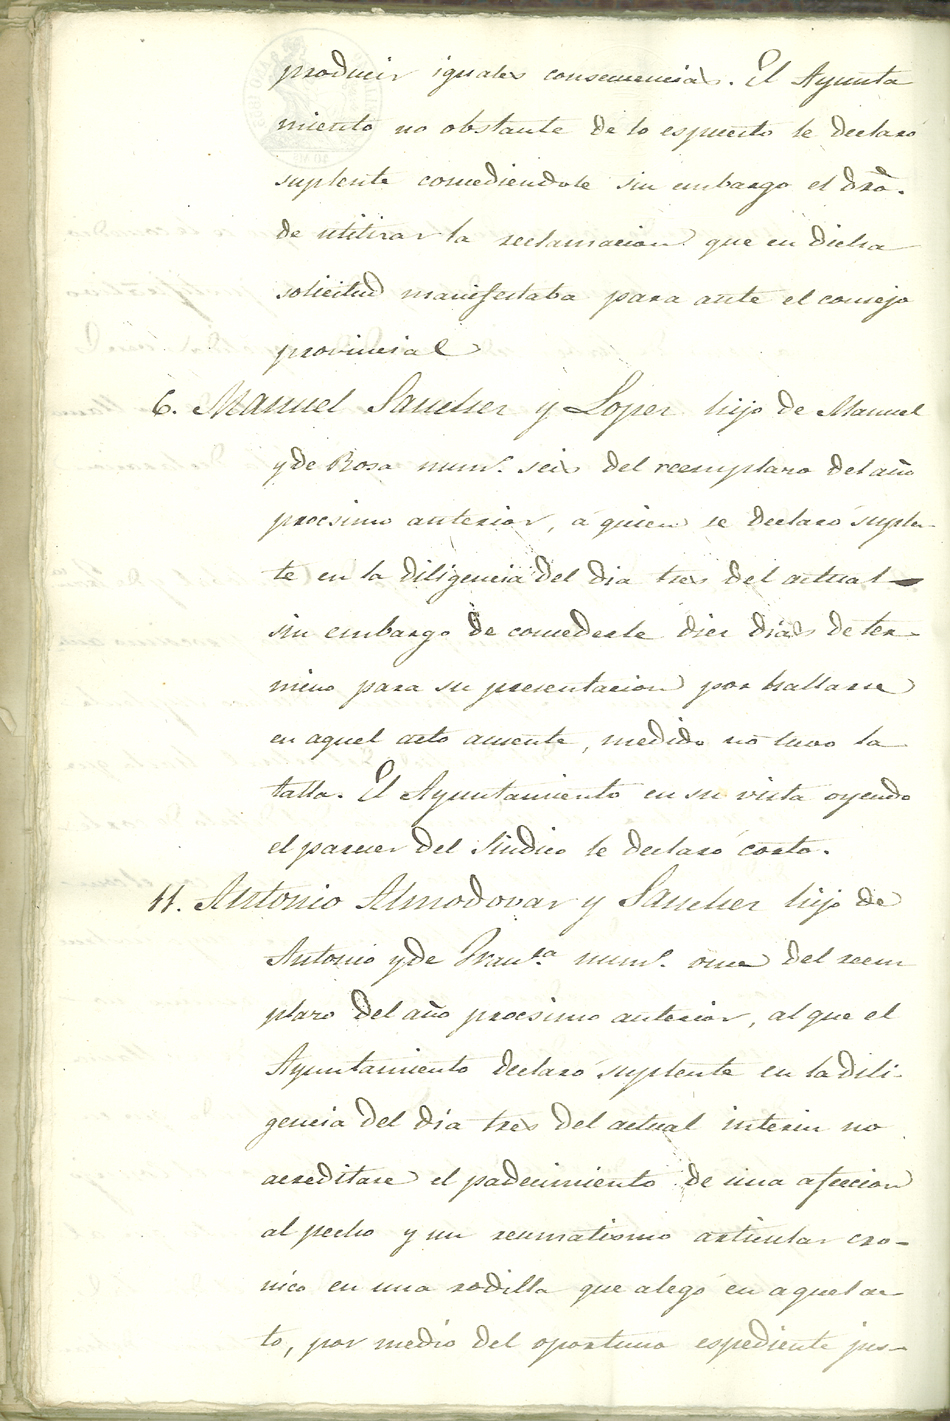 producir iguales consecuencias. El Ayunta
miento no obstante de lo espuesto le declaró
suplente comediendole sin embargo el dro.
de utilizar la reclamacion que en dicha
solicitud manifestaba para ante el consejo
provincial
6. Manuel Sanchez y Lopez hijo de Manuel
y de Rosa num.º seis del reemplazo del año
procsimo anterior, a quien se declaró suplen-
te en la diligencia del dia tres del actual
sin embargo de comederle diez dias de ter-
mino para su presentacion por hallarse
en aquel acto ausente, medido no tuvo la
talla. El Ayuntamiento en su vista oyendo
el parecer del Sindico le declaró corto.
11. Antonio Almodovar y Sanchez hijo de
Antonio y de Fran.ca num.º once del reem
plazo del año procsimo anterior, al que el
Ayuntamiento declaró suplente en la dili-
gencia del dia tres del actual interin no
acreditase el padecimiento de una afeccion
al pecho y un reumatismo articular cro-
nico en una rodilla que alegó en aquel ac-
to, por medio del oportuno espediente jus-